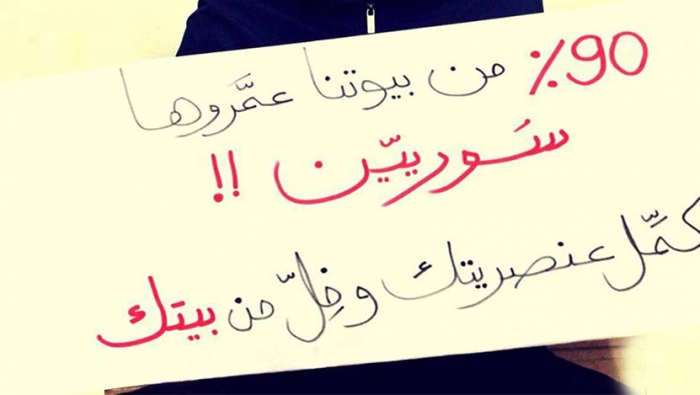 90٪ من بيوتنا عمَّروها
سُوريّين !!
كمِّل عنصريتك وفِلّ من بيتك